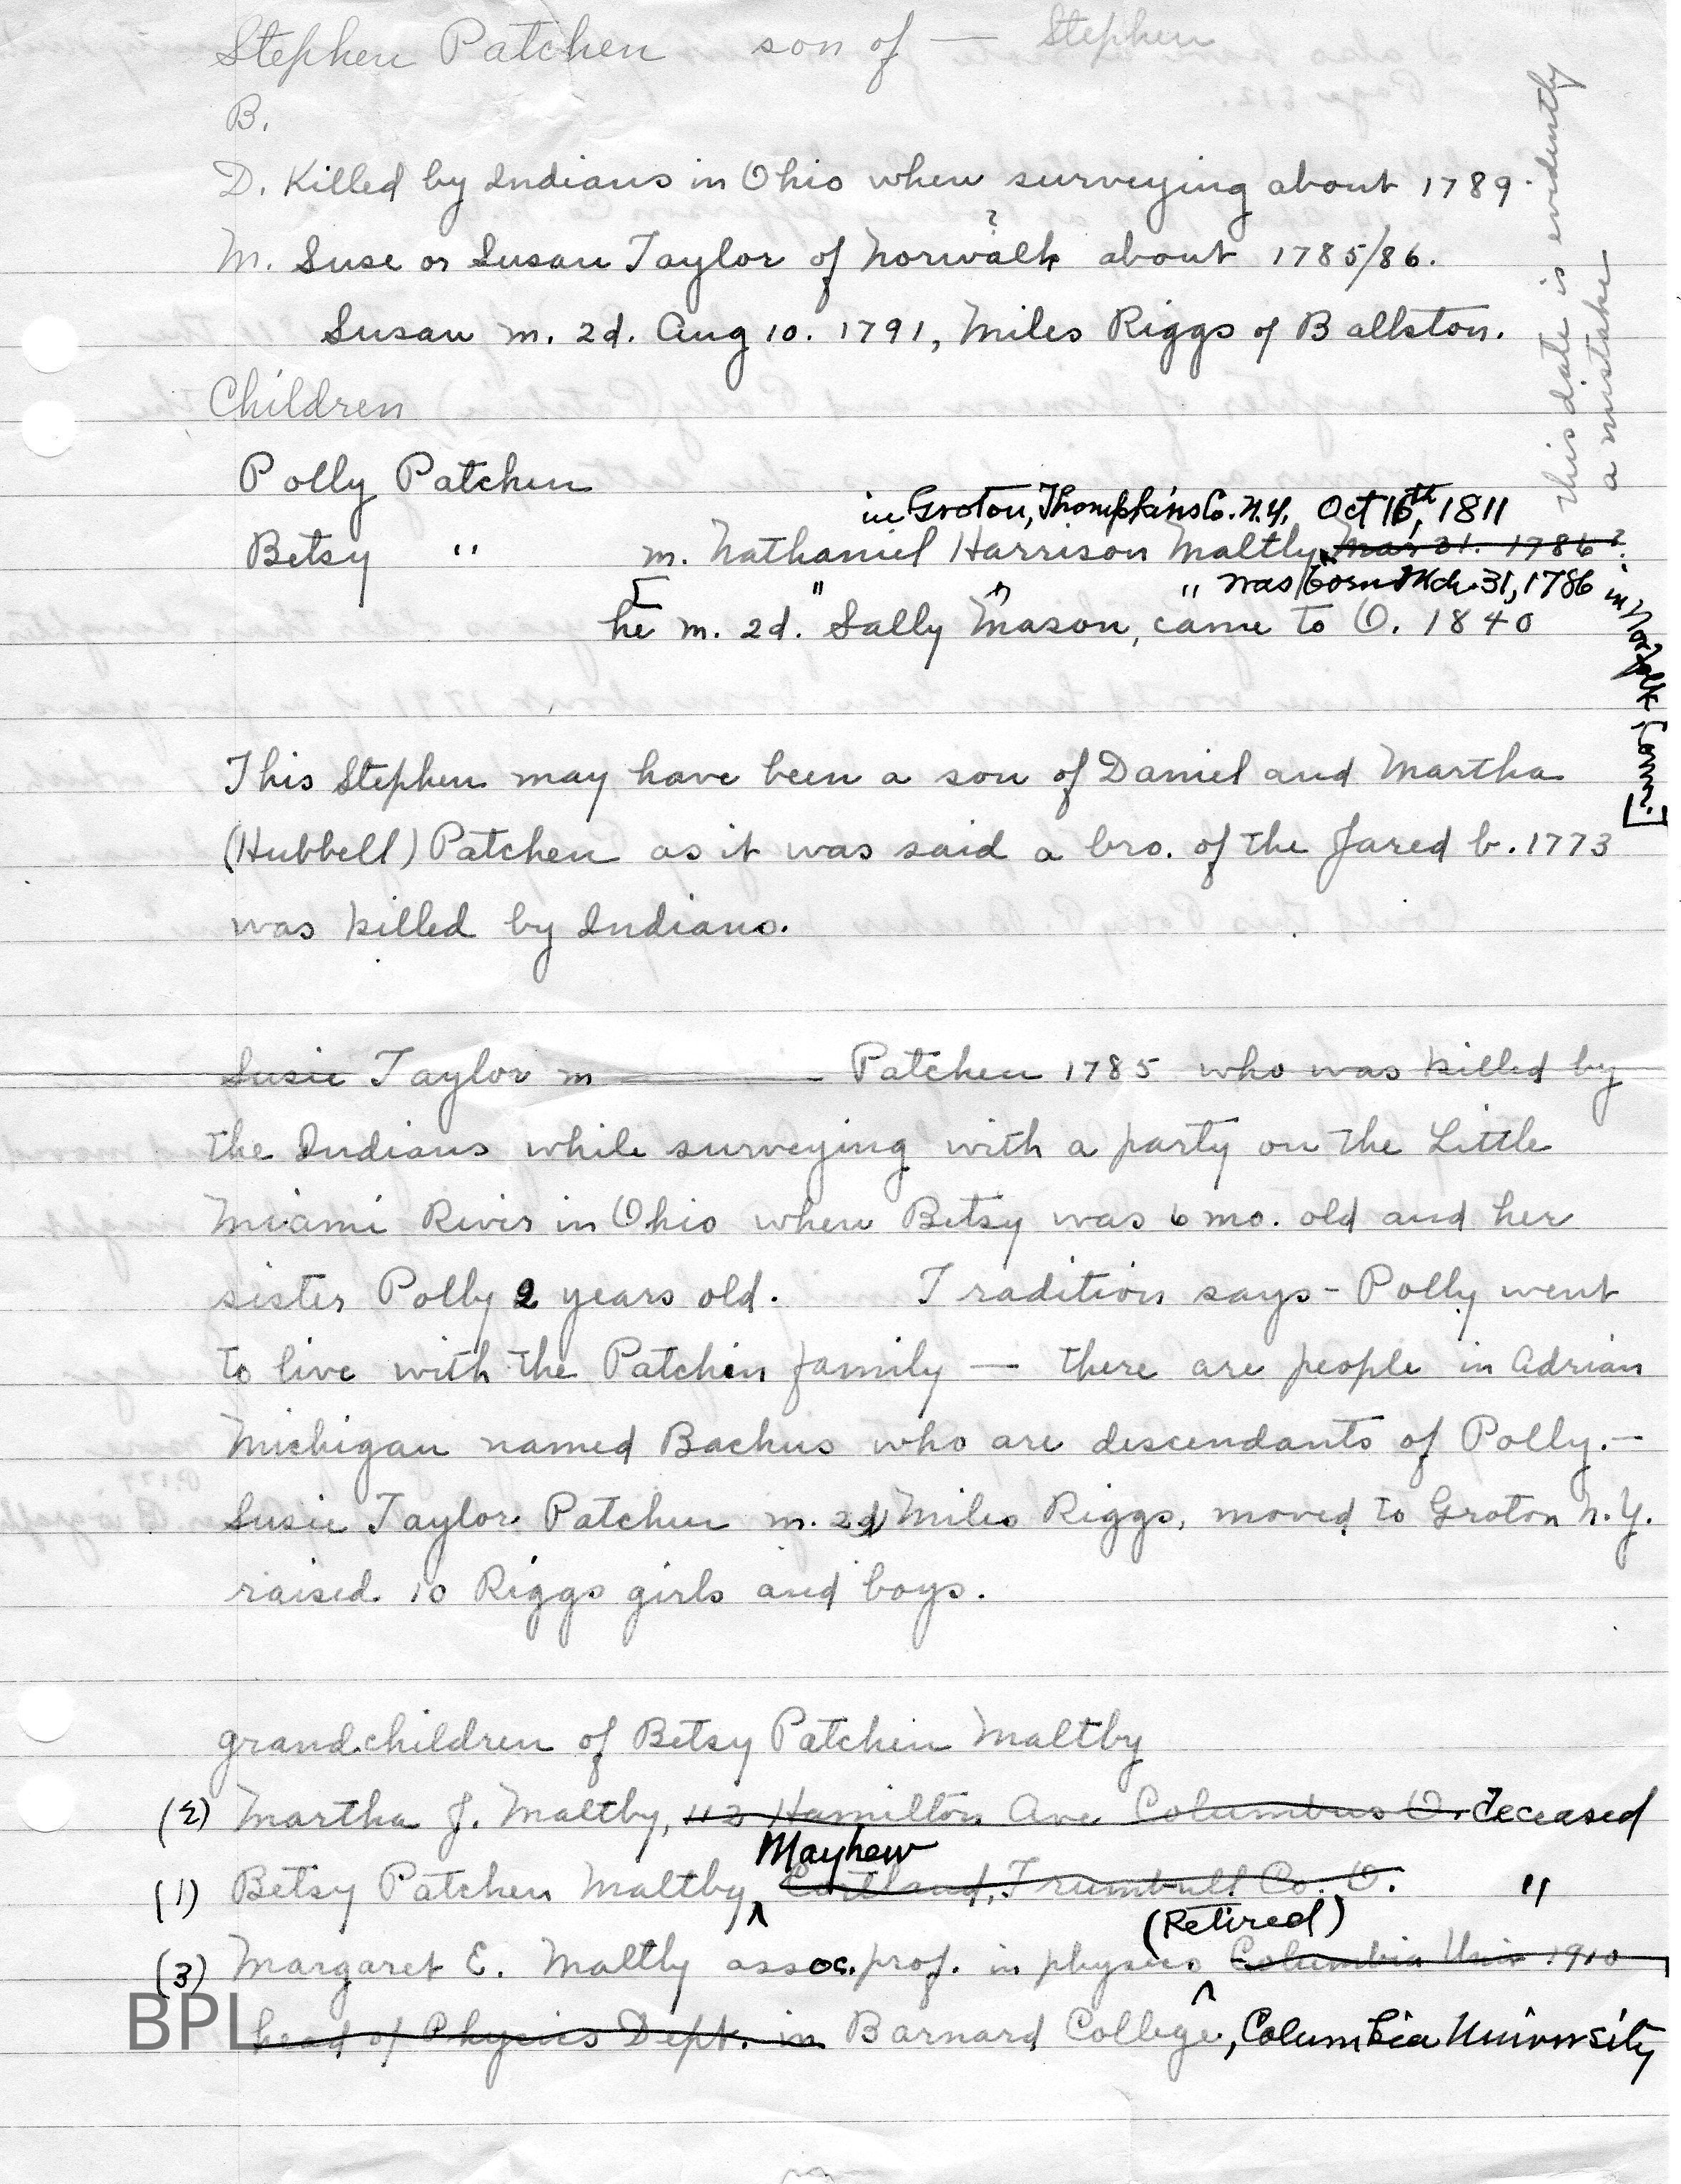 Stephen Patchen son of — Stephen
B.
D. Killed by Indians in Ohio when surveying about 1789.
?
M. Suse or Susan Taylor of Norwalk about 1785/86.
Susan m. 2d. Aug 10. 1791, Miles Riggs of Ballston.
This date is evidently
a mistake
Children
Polly Patchen
in Groton, Thompkins Co. N.Y. Oct 16th, 1811
Betsy " m. Nathaniel Harrison Maltby, Mar 31. 1786?
" " " was born Mch. 31, 1786 in Norfolk Conn.]
[he m. 2d. Sally Mason, came to O. 1840
This Stephen may have been a son of Daniel and Martha
(Hubbell) Patchen as it was said a bro. of the Jared b. 1773
was killed by Indians.
Susie Taylor m ——— Patchen 1785 who was killed by
the Indians while surveying with a party on the Little
Miami River in Ohio when Betsy was 6 mo. old and her
sister Polly 2 years old. Tradition says - Polly went
to live with the Patchin family — there are people in Adrian
Michigan named Bachus who are descendants of Polly. -
Susie Taylor Patchen m. 2d Miles Riggs, moved to Groton N.Y.
raised 10 Riggs girls and boys.
grandchildren of Betsy Patchin Maltby
(2) Martha J. Maltby, 112 Hamilton Ave Columbus O. deceased
Mayhew
(1) Betsy Patchen Maltby ^ Cortland, Trumbull Co. O. "
(Retired)
(3) Margaret E. Maltby assoc. prof. in physics ^ Columbia Univ 1910
head of Physics Dept. in Barnard College, Columbia University
BPL